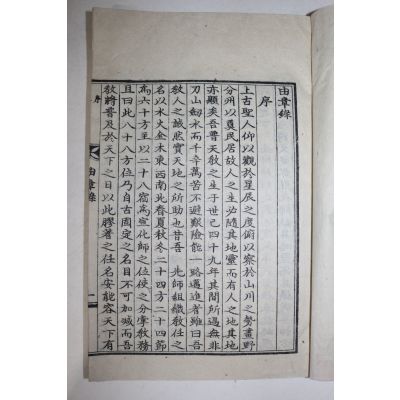 由章錄
序
上古聖人仰以觀於星辰之度俯以察於山川之勢畫野
分州以奠民居故人之生必隨其地靈而有人之地其地
亦顯矣吾普天敎之生于世已四十九年其間所過無非
刀山劒水而千辛萬苦不避艱險能一路邁進者雖曰吾
敎人之誠悃實天地之所助也昔吾 先師組織敎任之
名以水火金木東西南北春夏秋冬二十四方二十四節
爲六十方至以二十八宿爲宣化師之位使之分掌敎務
且曰此八十八方位乃自古固定之名目不可加减而吾
敎將普及於天下之日以此膠著之任名安能容天下有
序
由章錄
一